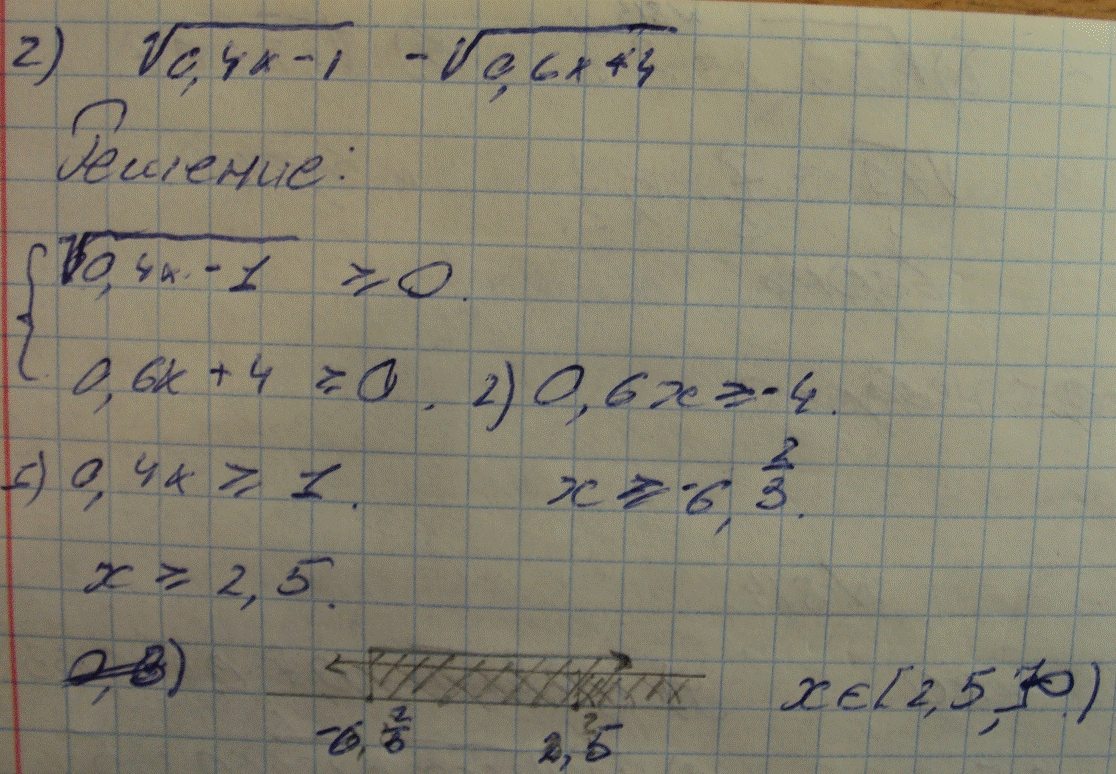 2) √0,4x-1 - √0,6x+4
Решение:
{ √0,4x - 1 ≥ 0.
0,6x + 4 ≥ 0. 2) 0,6x ≥ -4.
1) 0,4x ≥ 1. x ≥ -6, 2/3.
x ≥ 2,5.
-6, 2/3 2,5 x ∈ [2,5,